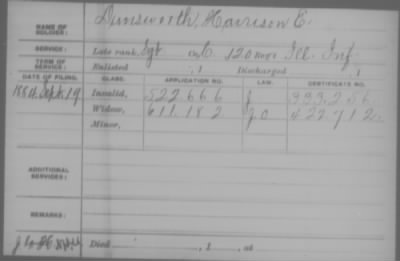 NAME OF SOLDIER: Dinsworth, Harrison E.
SERVICE: Late rank, Sgt Co. C. 120 Regt Ill. Inf.
TERM OF SERVICE: Enlisted , 1 Discharged , 1
DATE OF FILING. CLASS. APPLICATION NO. LAW. CERTIFICATE NO.
1884 Sept. 19 Invalid, 522666 393.256
Widow, 611.182 422712.
Minor,
ADDITIONAL SERVICES:
REMARKS:
Died , 1 , at